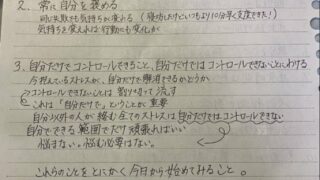 2. 常に自分を褒める
同じ失敗でも気持ちが変わる (寝坊したけどいつもより10分早く支度できた!)
気持ちを変えれば行動にも変化が
3. 自分だけでコントロールできること、自分だけではコントロールできないことにわける
今抱えているストレスが、自分だけで解消できるかどうか
コントロールできないことは割り切って流す
これは「自分だけで」ということが重要
自分以外の人が絡む全てのストレスは自分だけではコントロールできない
自分でできる範囲でだけ頑張ればいい
悩まない。悩む必要はない。
これらのことをとにかく今日から始めてみること。